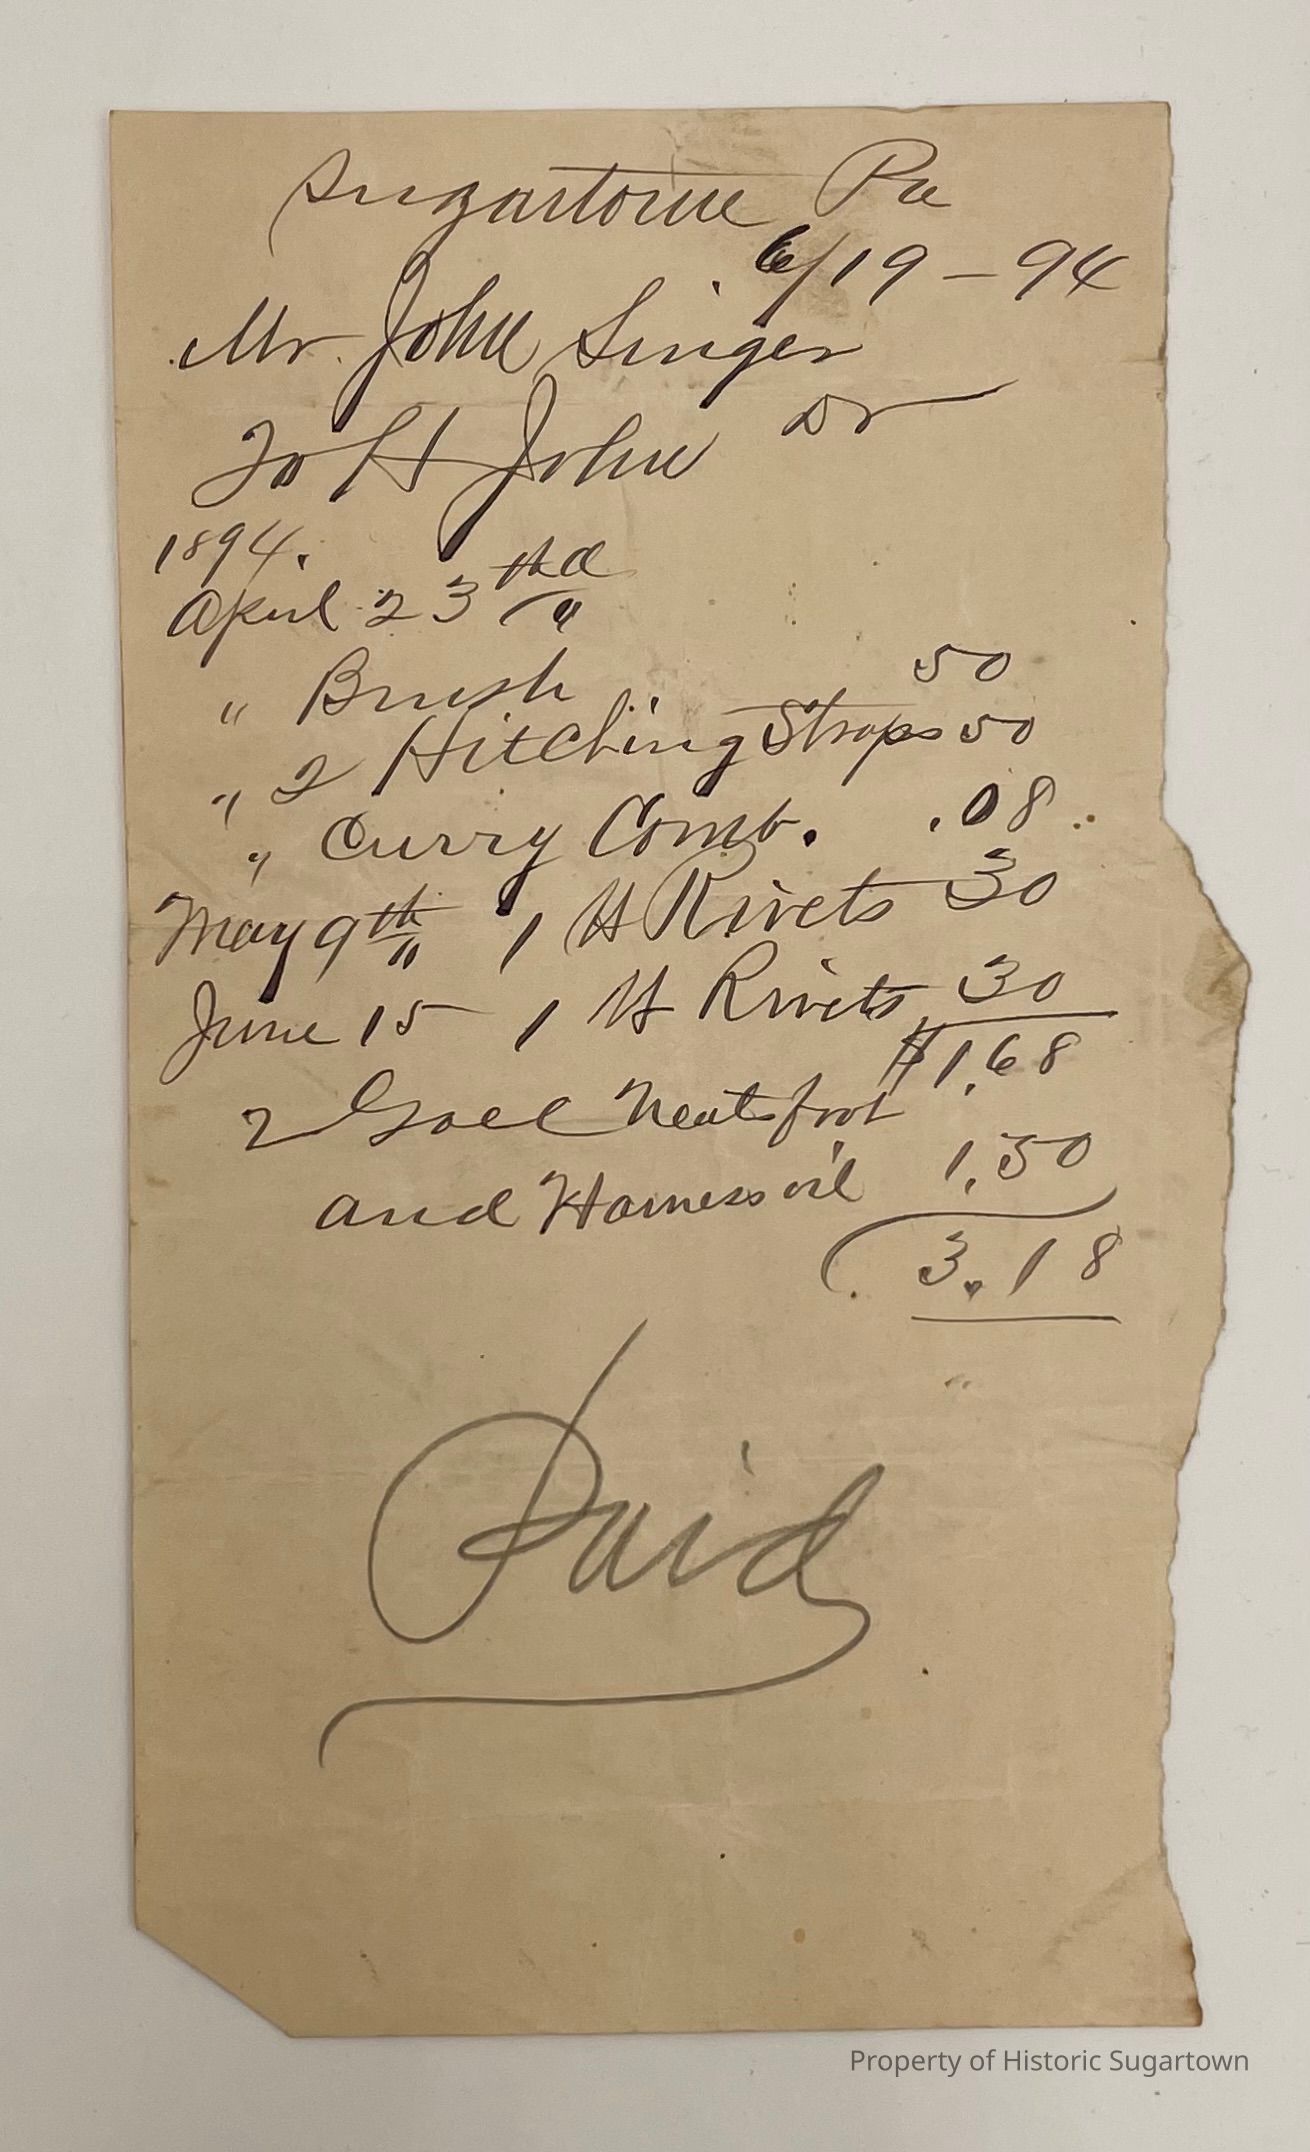 Sugartown Pa
6/19 - 94
Mr. John Singer
To H John Dr
1894.
April 23 thd "
" Brush 50
" 2 Hitching Straps 50
" Curry Comb. .08
May 9th " 1 lb Rivets 30
June 15 1 lb Rivets 30
$1.68
2 Gall Neatsfoot
and Harness oil 1.50
3.18
Paid
Property of Historic Sugartown